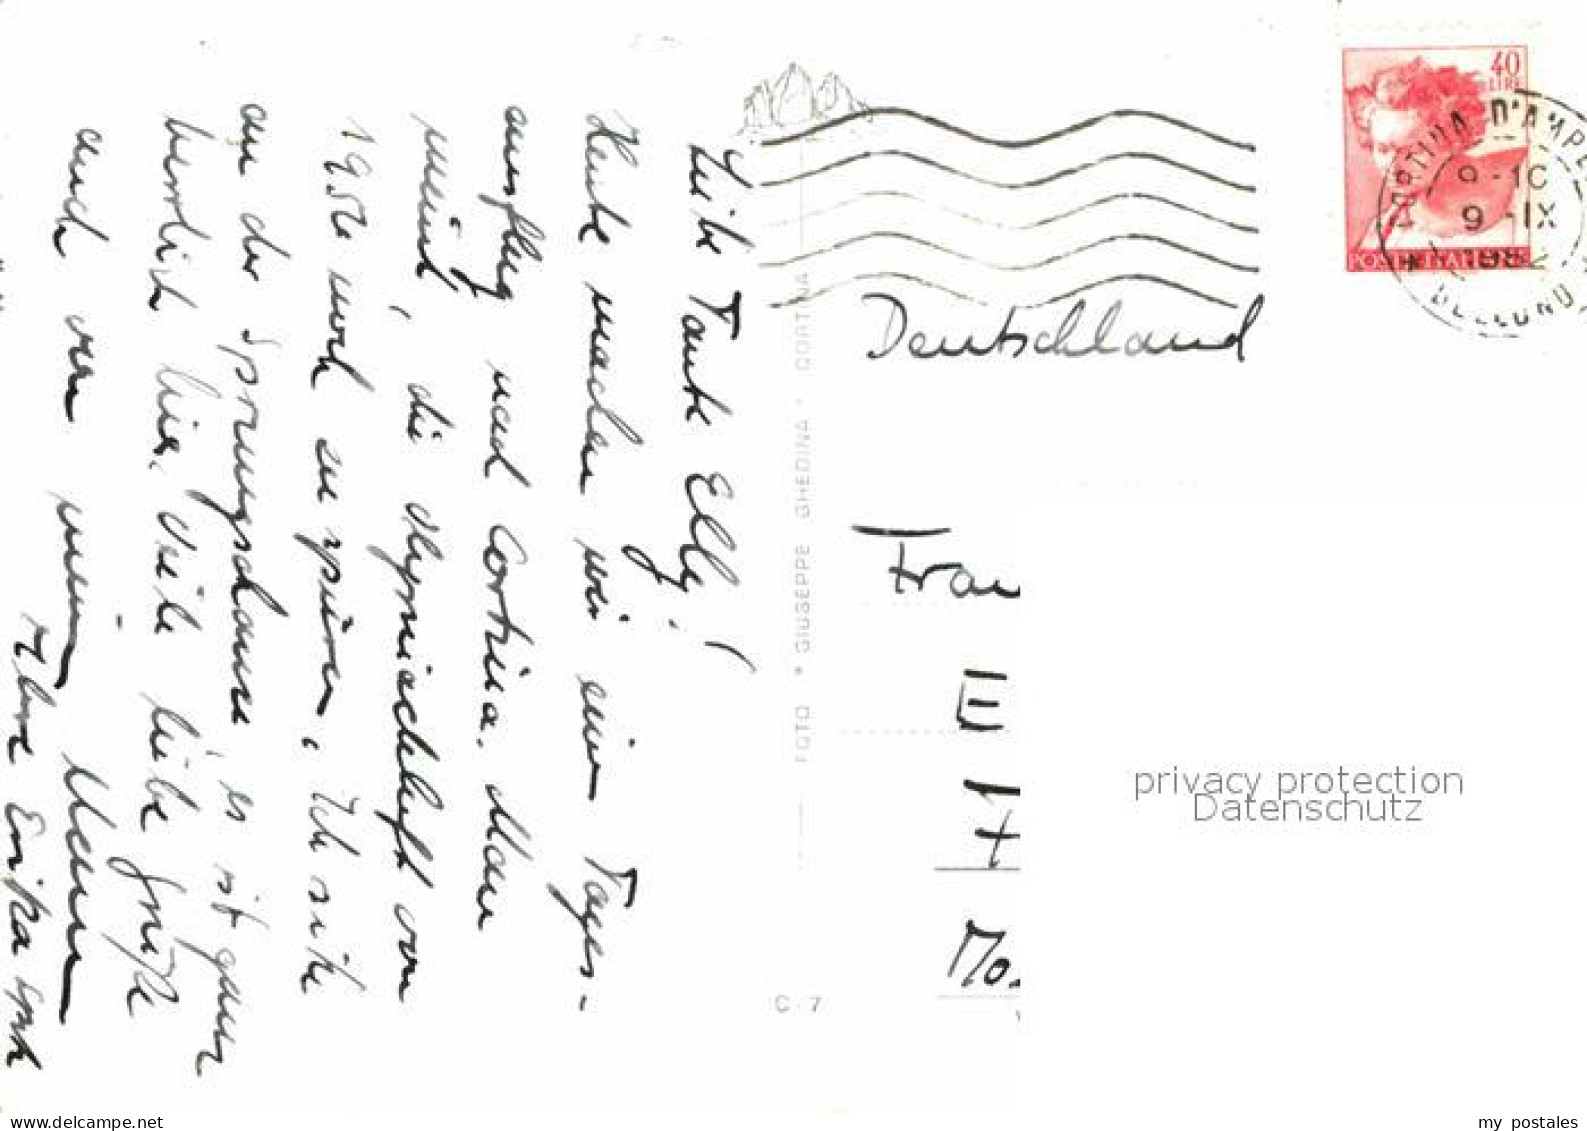 Liebe Tante Elly!
Heute machen wir einen Tages-
ausflug nach Cortina. Man
meint, die Olympiadeluft von
1956 noch zu spüren. Ich sitze
an der Sprungschanze, es ist ganz
herrlich hier. Viele liebe Grüße
auch von
Erika
FOTO * GIUSEPPE GHEDINA * CORTINA
C - 7
40
LIRE
POSTE ITALIANE
CORTINA D'AMPEZZO
9 - IX
1962
BELLUNO
Deutschland
Frau
E
H
privacy protection
Datenschutz
www.delcampe.net
my postales